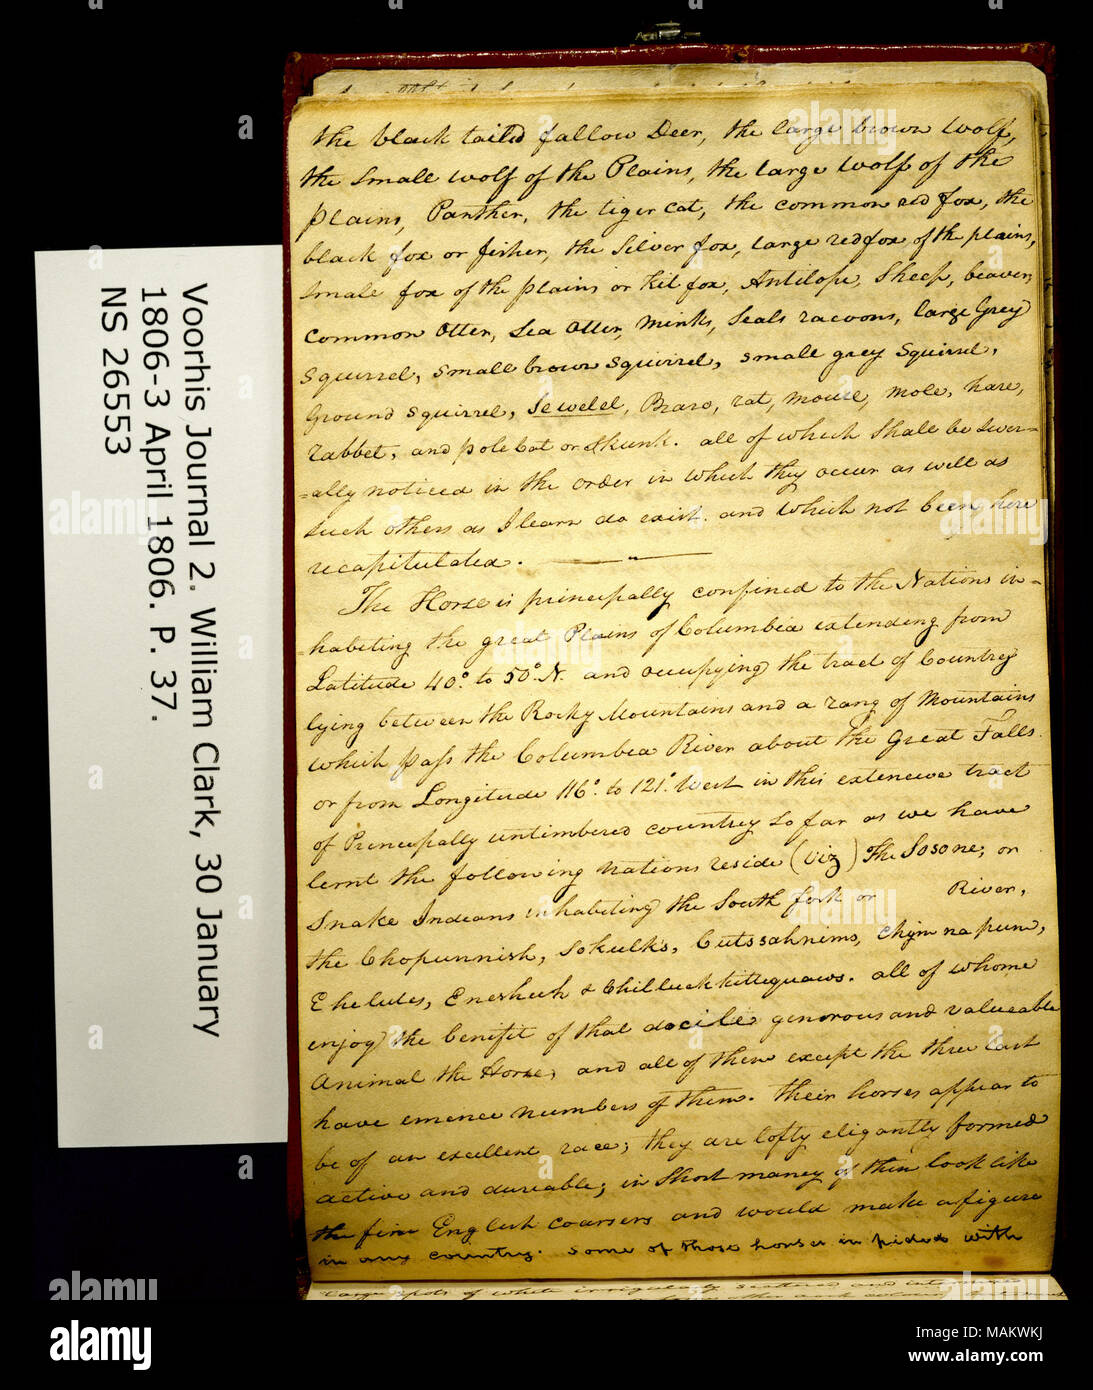 the black tailed fallow Deer, the large brown wolf,
the Small wolf of the Plains, the large wolf of the
Plains, Panther, the tiger cat, the common red fox, the
black fox or fisher, the Silver fox, large red fox of the plains,
Smale fox of the plains or Kit fox, Antilope, Sheep, beaver,
Common Otter, Sea Otter, minks, Seals racoons, large Grey
Squirrel, Small brown Squirrel, Small grey Squirrel,
Ground Squirrel, Sewelel, Braro, rat, mouse, mole, hare,
rabbet, and pole Cat or Skunk. all of which Shall be Sever=
=ally noticed in the order in which they occur as well as
Such others as I learn do exist. and which not been here
recapitulated.
The Horse is principally confined to the Nations in=
=habiting the great Plains of Columbia extending from
Latitude 40° to 50° N. and occupying the tract of Countrey
lying between the Rocky Mountains and a rang of Mountains
which pass the Columbia River about the Great Falls
or from Longitude 116° to 121° West in this extencive tract
of Principally untimbered countrey so far as we have
lernt the following nations reside (viz) The Sosone, or
Snake Indians inhabiting the South fork or River,
the Chopunnish, Sokulks, Cutssahnims, Chymnapum,
Ehelutes, Eneshuh & Chilluckkittequaws. all of whome
enjoy the benifit of that docile generous and valueable
Animal the Horse, and all of them except the three last
have emence numbers of them. Their horses appear to
be of an excellent race; they are lofty eligantly formed
active and dureable; in Short maney of them look like
the fine English coarsers and would make a figure
in any country. Some of those horses in pided with
large spots of white irregularly scattered and
Voorhis Journal 2. William Clark, 30 January
1806-3 April 1806. P. 37.
NS 26553
alamy
Image ID: MAKWKJ
www.alamy.com